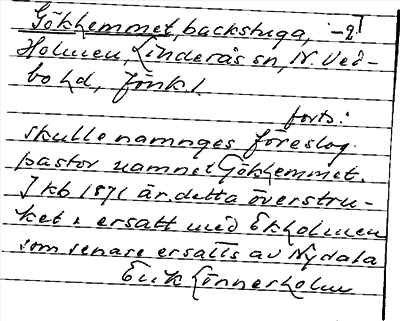 Gökhemmet, backstuga, -2
Holmen, Linderås sn, N. Ved-
bo hd, Jönk.l.
forts:
skulle namnges föreslog
pastor namnet Gökhemmet.
I kb 1871 är detta överstru-
ket o ersatt med Ekholmen
som senare ersatts av Nydala
Erik Linnerholm